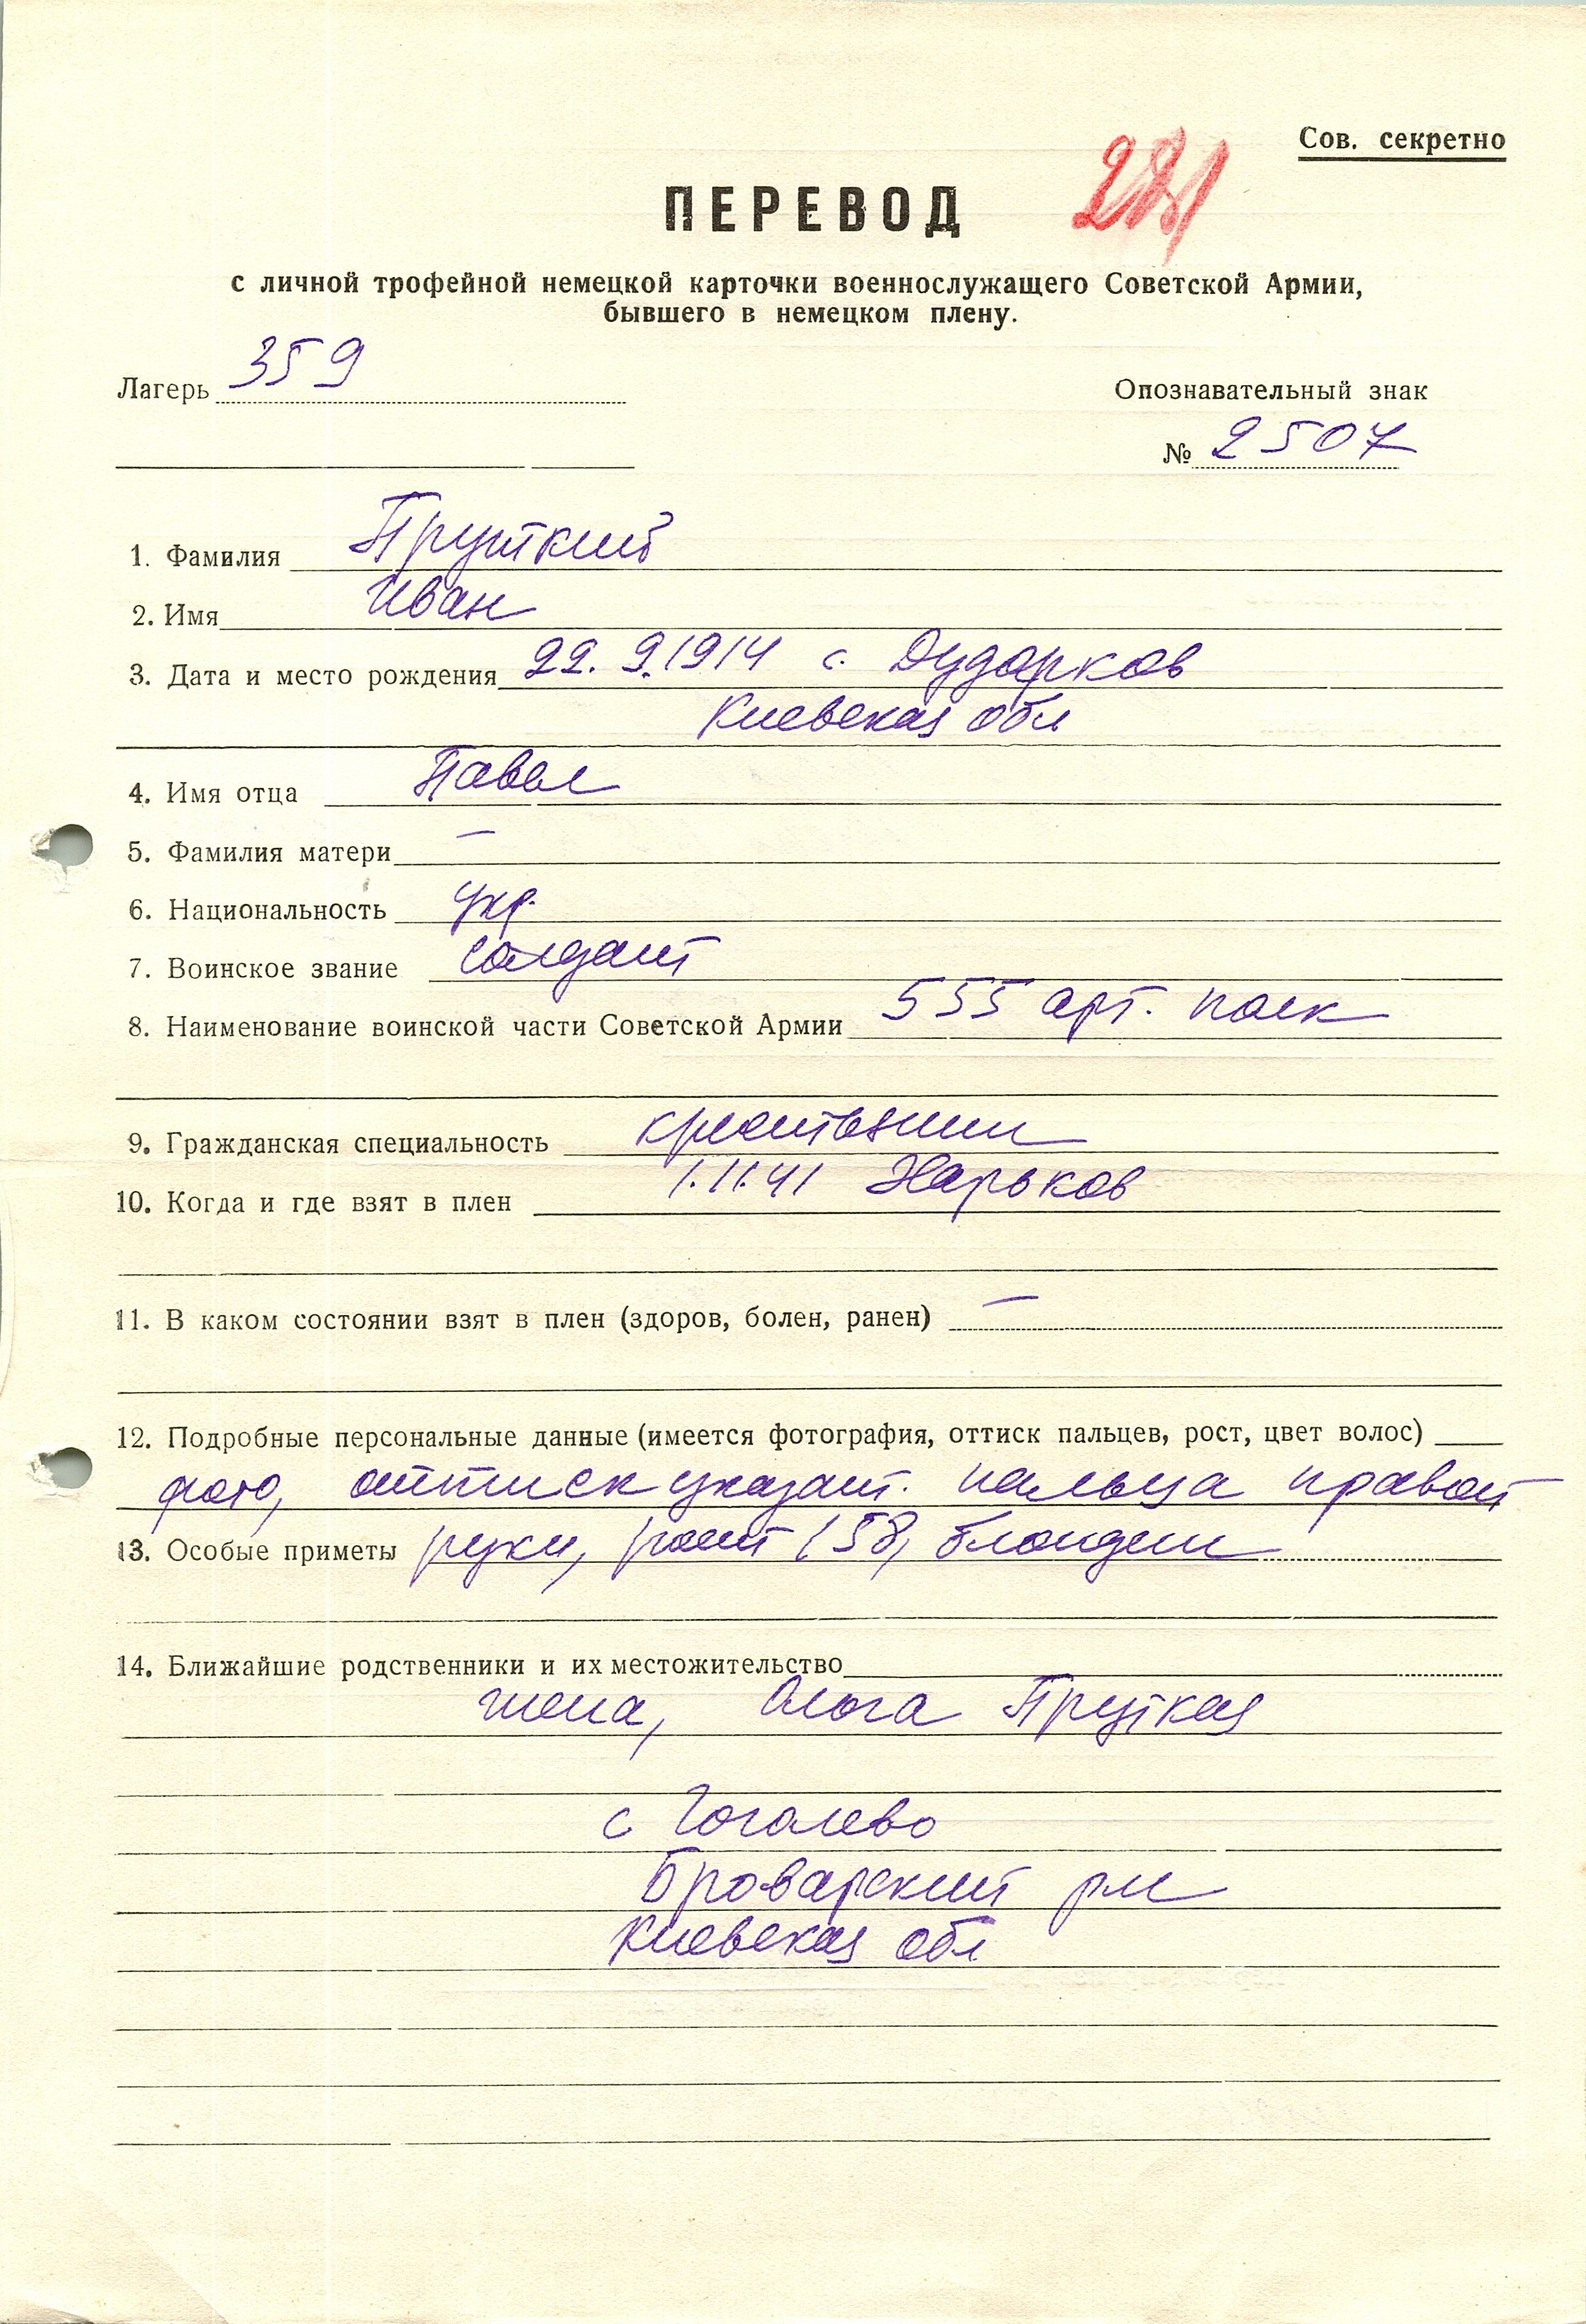 Сов. секретно
ПЕРЕВОД
с личной трофейной немецкой карточки военнослужащего Советской Армии,
бывшего в немецком плену.
Лагерь 359
Опознавательный знак
№ 2507
1. Фамилия Пруткий
2. Имя Иван
3. Дата и место рождения 22.9.1914 с. Дударков
Киевская обл
4. Имя отца Павел
5. Фамилия матери —
6. Национальность укр.
7. Воинское звание солдат
8. Наименование воинской части Советской Армии 555 арт. полк
9. Гражданская специальность крестьянин
10. Когда и где взят в плен 1.11.41 Харьков
11. В каком состоянии взят в плен (здоров, болен, ранен) —
12. Подробные персональные данные (имеется фотография, оттиск пальцев, рост, цвет волос)
фото, оттиск указат. пальца правой
13. Особые приметы руки, рост 158, блондин
14. Ближайшие родственники и их местожительство
жена, Ольга Пруткая
с Гоголево
Броварский рн
Киевская обл